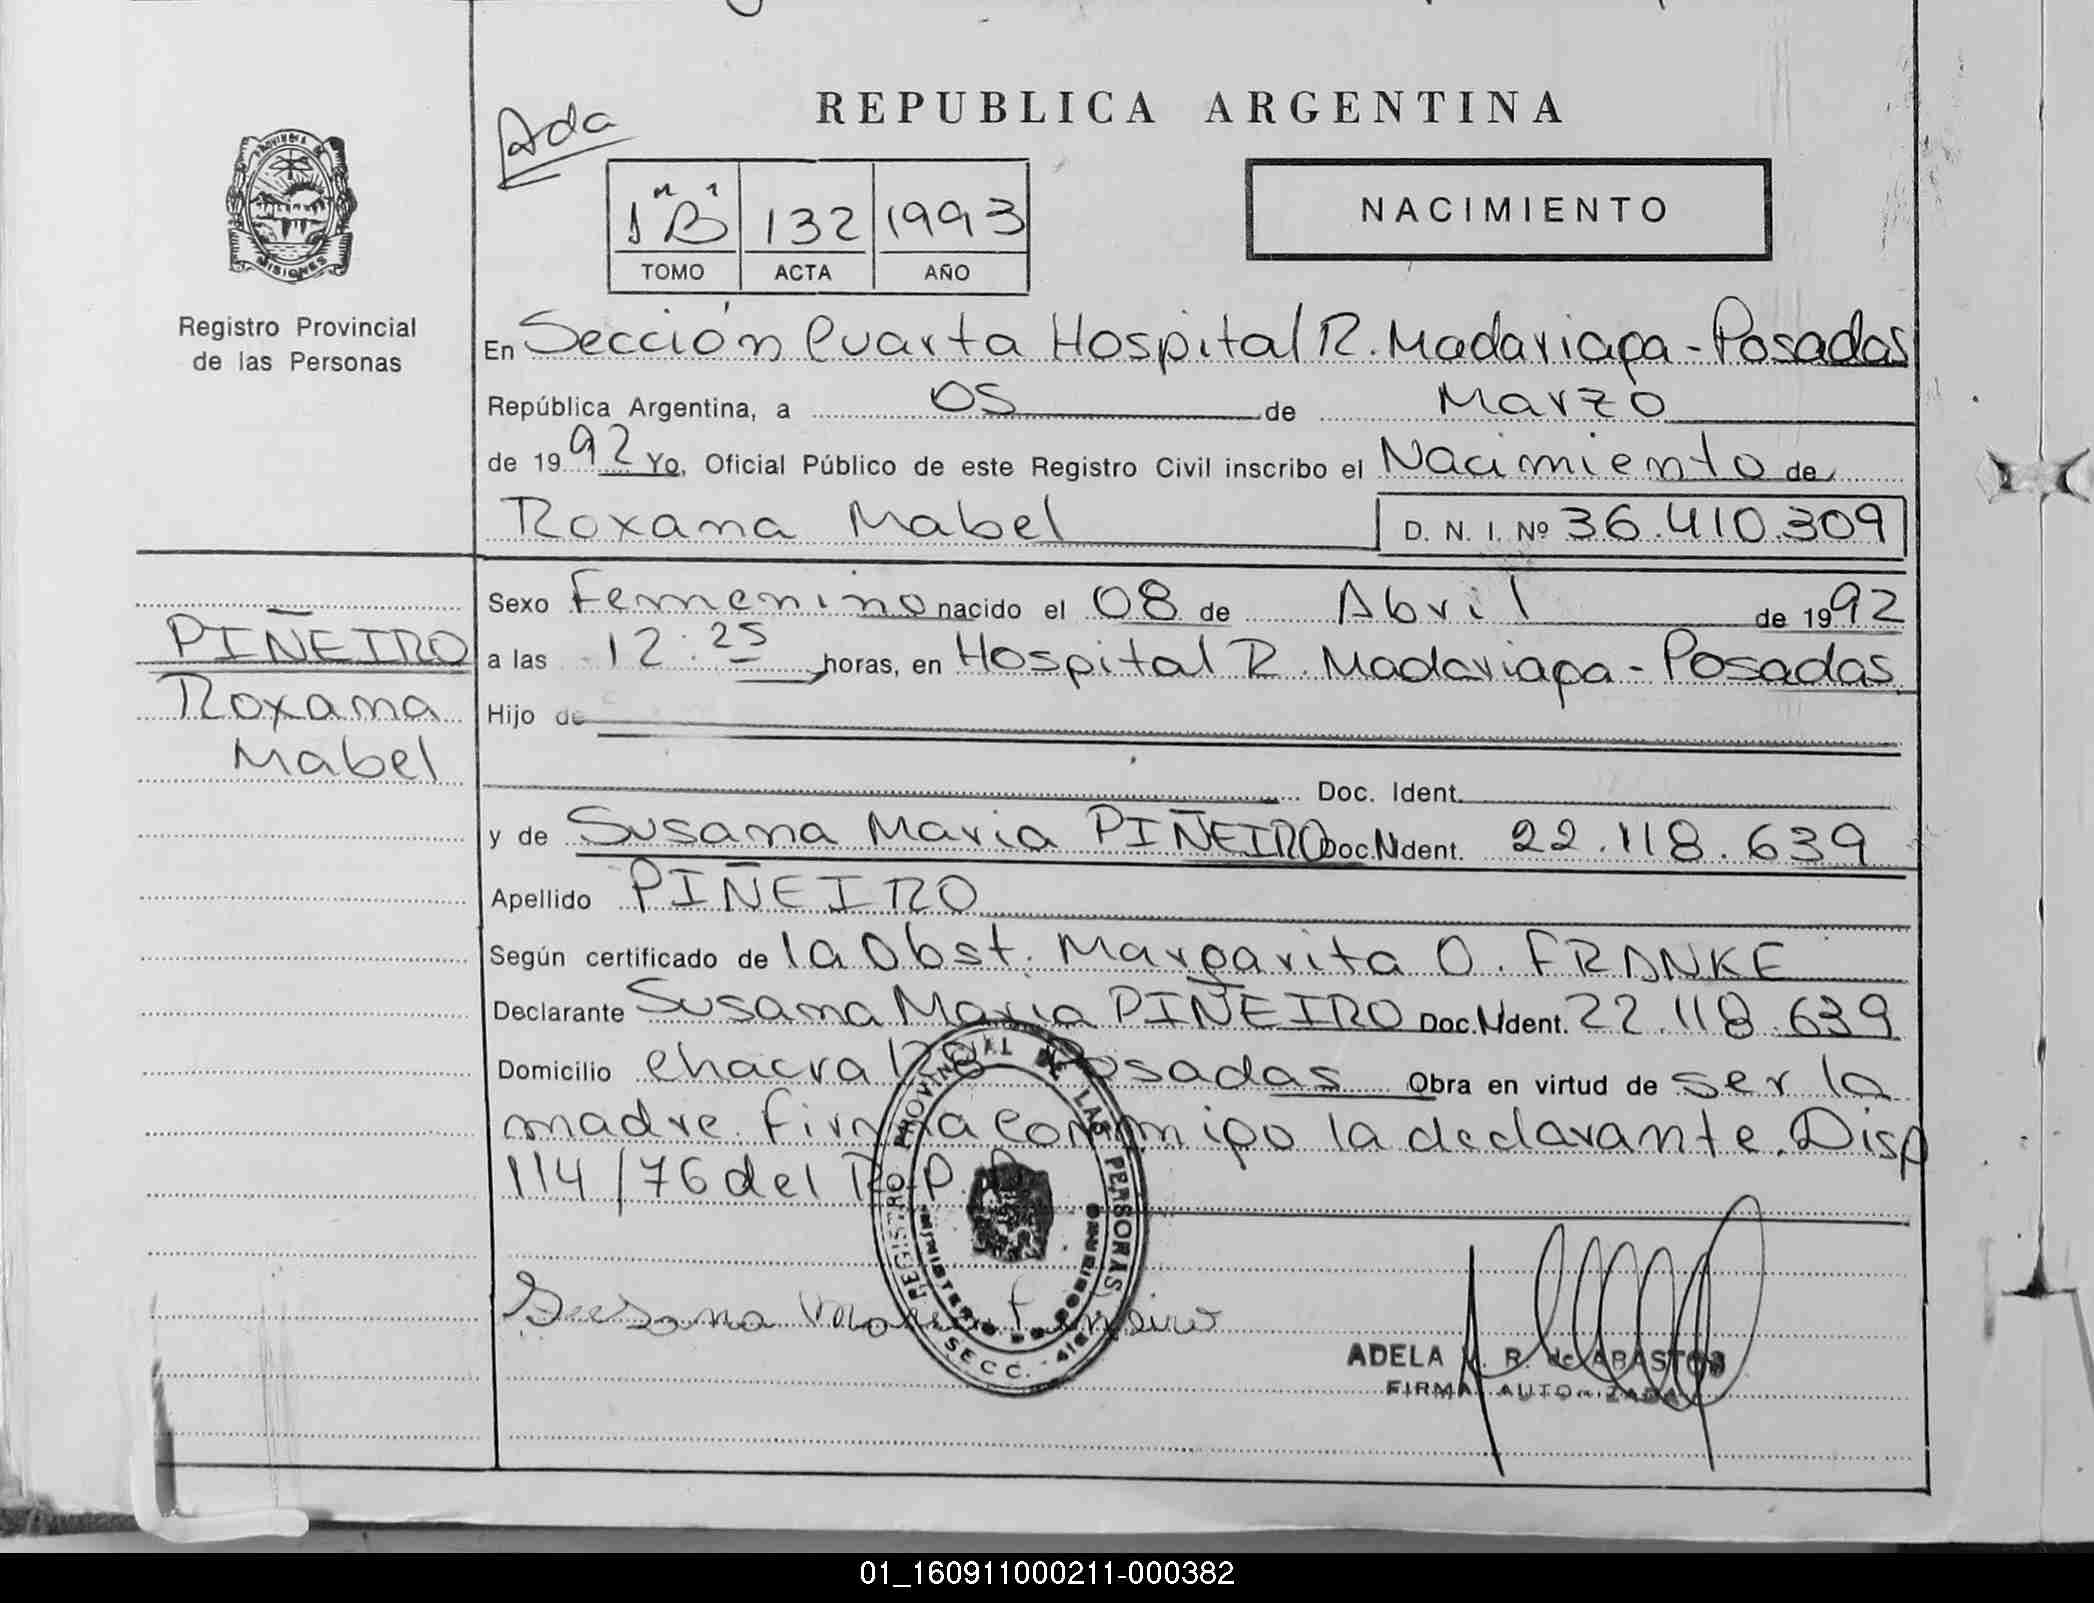 REPUBLICA ARGENTINA
Ada
1 "B" 132 1993
TOMO ACTA AÑO
NACIMIENTO
MISIONES
Registro Provincial
de las Personas
En Sección Cuarta Hospital R. Madariaga - Posadas
República Argentina, a 05 de Marzo
de 1992 Yo, Oficial Público de este Registro Civil inscribo el Nacimiento de
Roxana Mabel D. N. I. Nº 36.410.309
Sexo Femenino nacido el 08 de Abril de 1992
PIÑEIRO
Roxana
Mabel
a las 12:25 horas, en Hospital R. Madariaga - Posadas
Hijo de
Doc. Ident.
y de Susana Maria PIÑEIRO Doc. Ident. 22.118.639
Apellido PIÑEIRO
Según certificado de la Obst. Margarita O. FRANKE
Declarante Susana Maria PIÑEIRO Doc. Ident. 22.118.639
Domicilio chacra 128 Posadas Obra en virtud de ser la
madre. Firma conmigo la declarante. Disp
114/76 del R.P.
REGISTRO PROVINCIAL DE LAS PERSONAS
MINISTERIO DE GOBIERNO
SECC. 4ta
Susana Maria Piñeiro
ADELA R. de ABASTOS
FIRMA AUTORIZADA
01_160911000211-000382